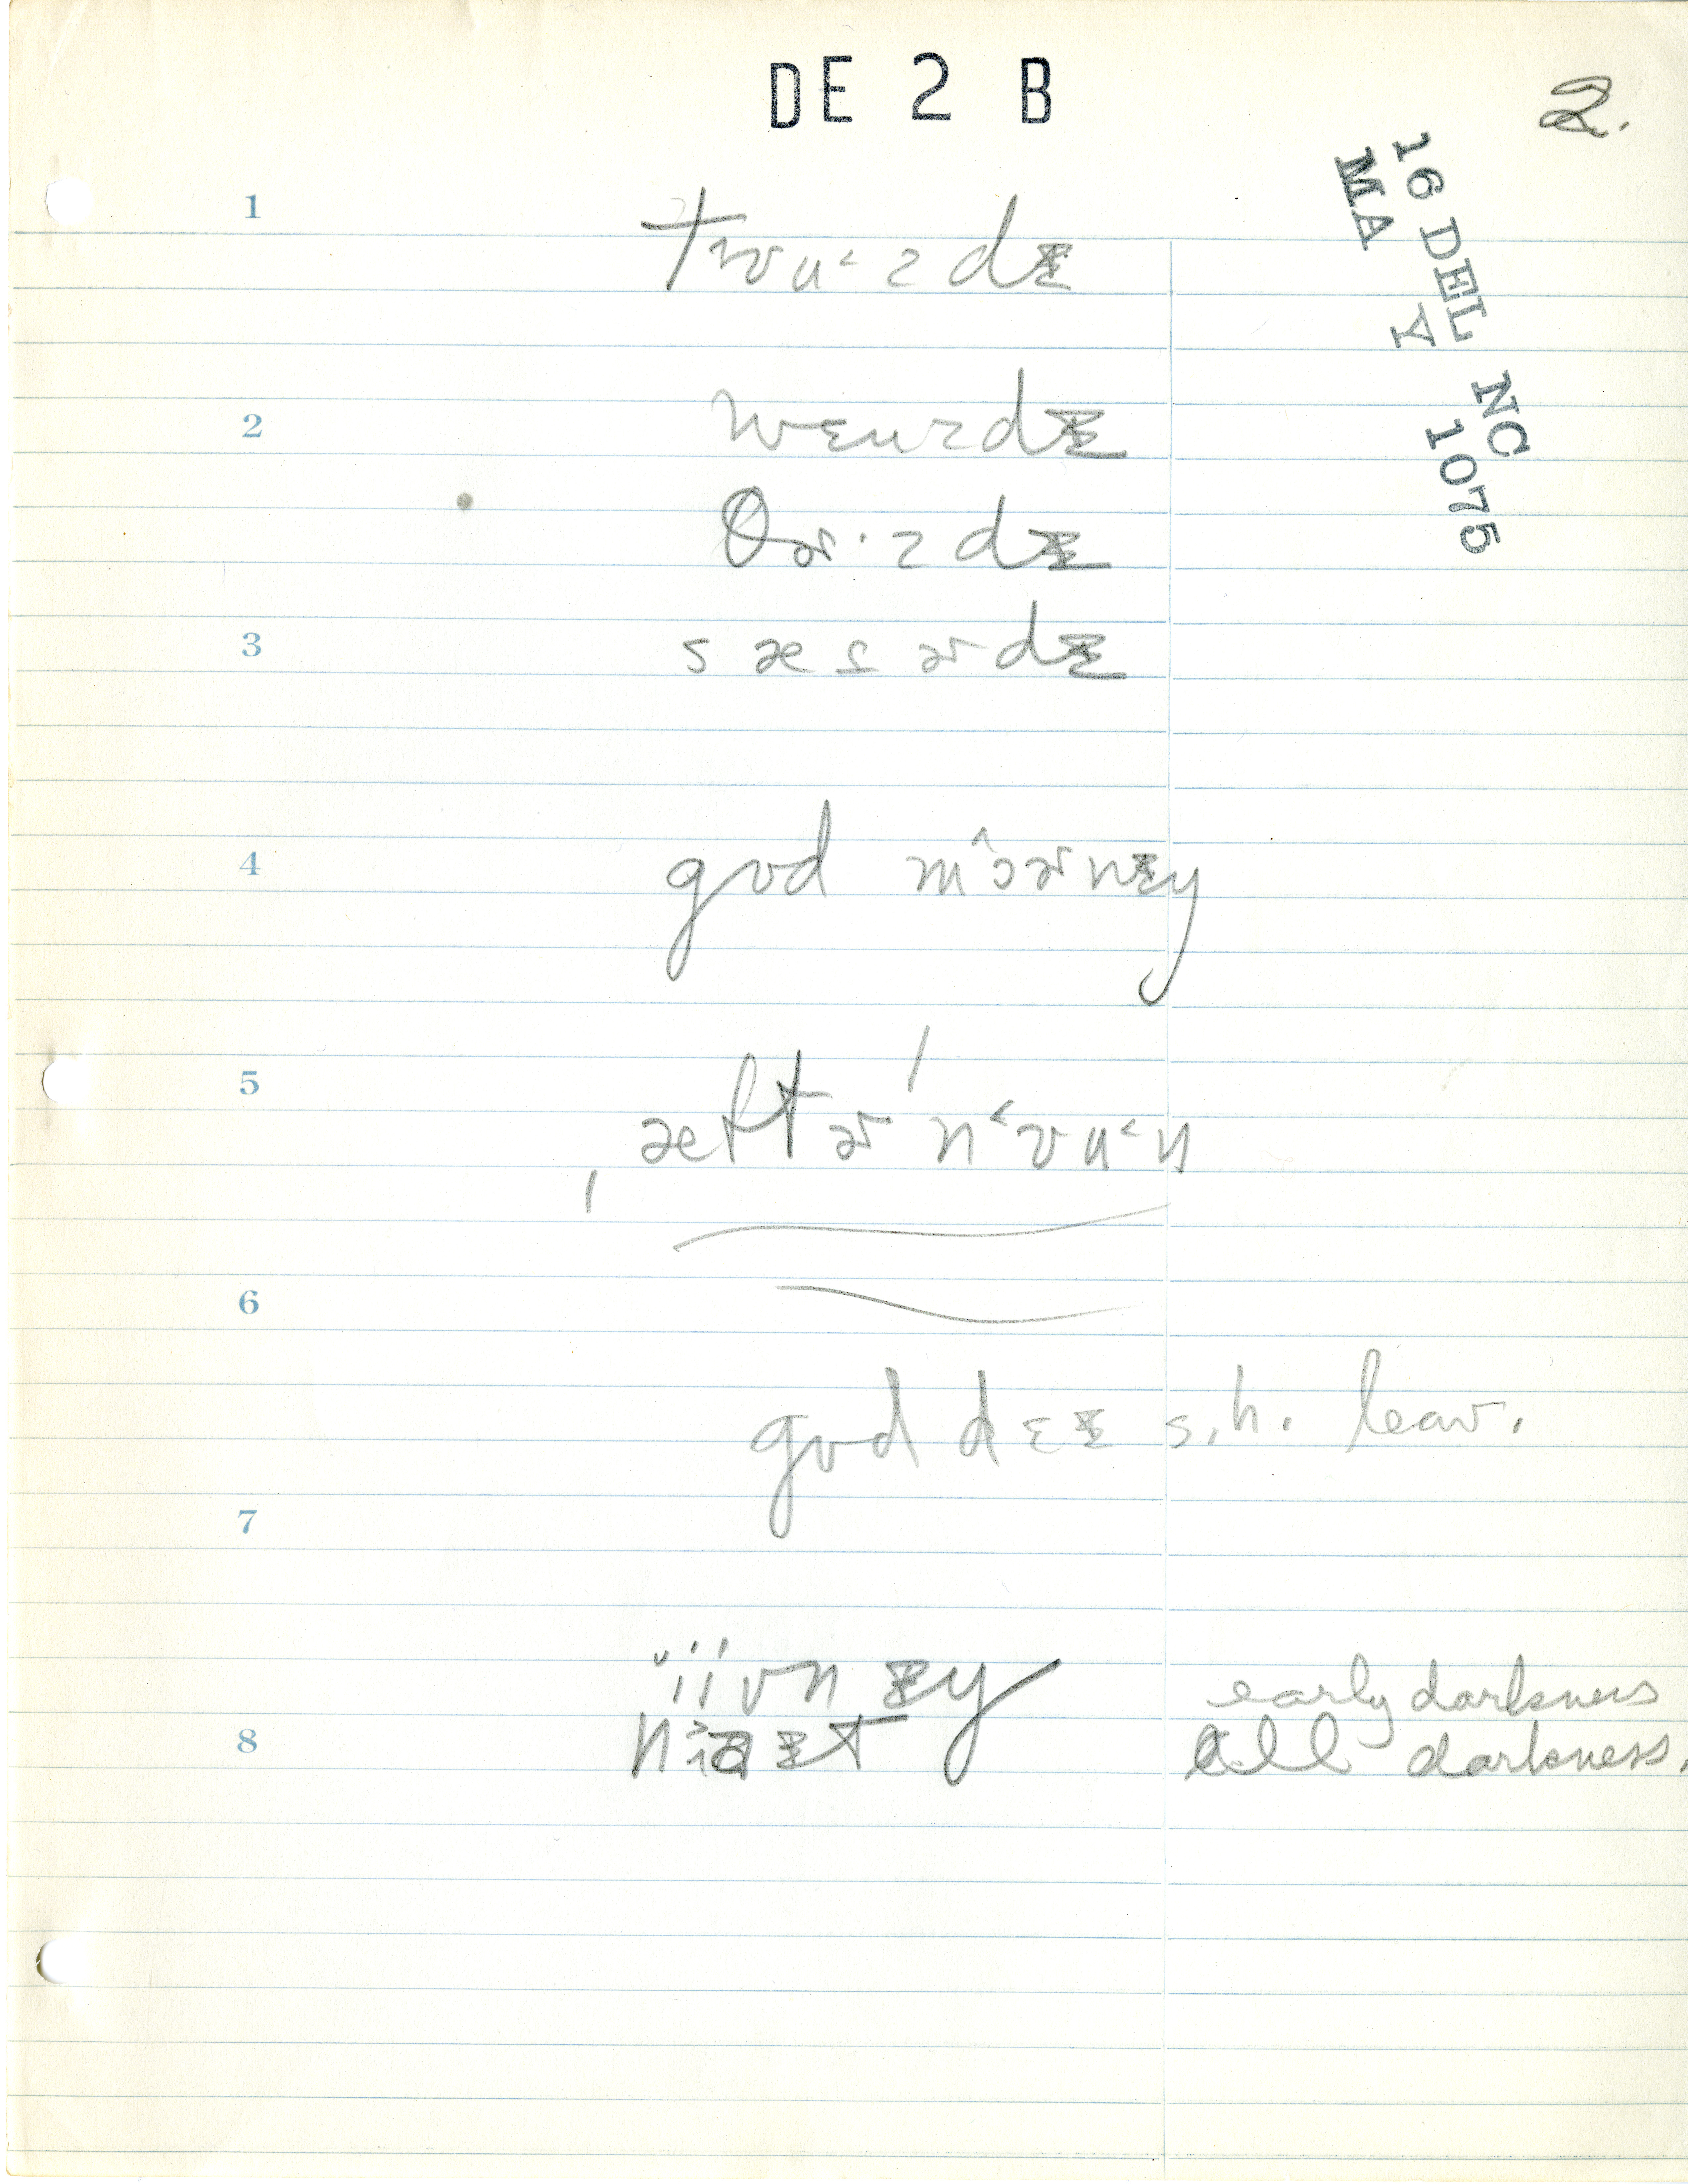 DE 2 B
2.
16 DEL NC
MA Y 1075
1
tɪʊu˂zdɪ
2
wɛuzdɪ
θɚ·zdɪ
3
sæɾɚdɪ
4
gʊd mɔ̂ɚnɪŋ
5
ˌæftɚˈn˂ʊu˂n
6
gʊd dɛɪ s.h. leav.
7
iivnɪŋ early darkness
8
nɪt all darkness.